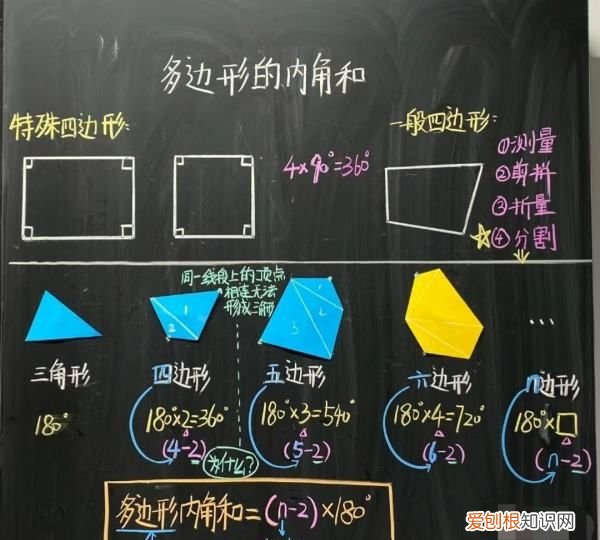 多边形的内角和
特殊四边形:
4×90°=360°
一般四边形:
①测量
②剪拼
③折量
④分割
同一线段上的顶点
相连无法
形成三角形
1
2
1
2
3
...
三角形
四边形
五边形
六边形
n边形
180°
180°×2=360°
180°×3=540°
180°×4=720°
180°×□
(4-2)
为什么?
(5-2)
(6-2)
(n-2)
多边形内角和=(n-2)×180°
爱刨根知识网